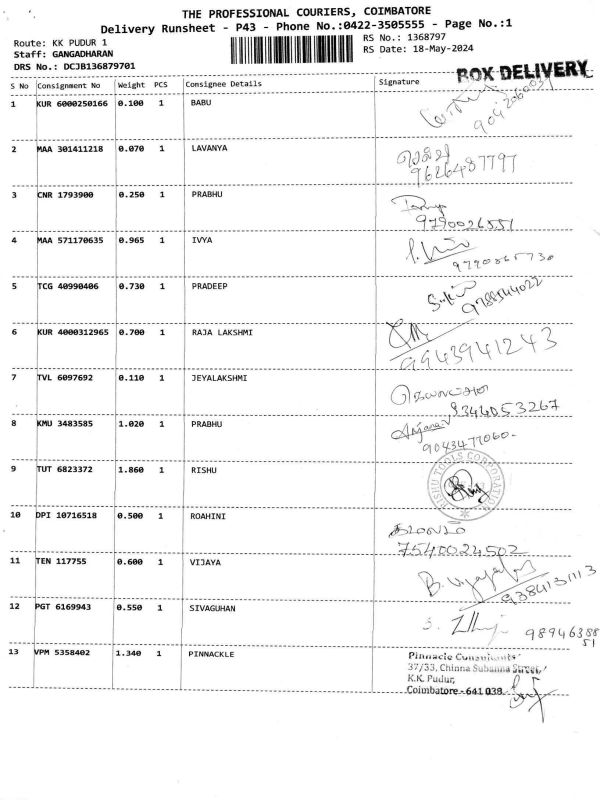 THE PROFESSIONAL COURIERS, COIMBATORE
Delivery Runsheet - P43 - Phone No.:0422-3505555 - Page No.:1
Route: KK PUDUR 1
RS No.: 1368797
Staff: GANGADHARAN
RS Date: 18-May-2024
DRS No.: DCJB136879701
BOX DELIVERY
S No Consignment No Weight PCS Consignee Details Signature
1 KUR 6000250166 0.100 1 BABU
2 MAA 301411218 0.070 1 LAVANYA
9626487797
3 CNR 1793900 0.250 1 PRABHU
9790026551
4 MAA 571170635 0.965 1 IVYA
5 TCG 40990406 0.730 1 PRADEEP
9788544022
6 KUR 4000312965 0.700 1 RAJA LAKSHMI
9943941243
7 TVL 6097692 0.110 1 JEYALAKSHMI
9344053267
8 KMU 3483585 1.020 1 PRABHU
Anjana
9043477060-
9 TUT 6823372 1.860 1 RISHU
RISHU TOOLS CORPORATION
10 DPI 10716518 0.500 1 ROAHINI
7540024502
11 TEN 117755 0.600 1 VIJAYA
9384131113
12 PGT 6169943 0.550 1 SIVAGUHAN
13 VPM 5358402 1.340 1 PINNACKLE
Pinnacle Consultants
37/33, Chinna Subanna Street,
K.K. Pudur,
Coimbatore - 641 038